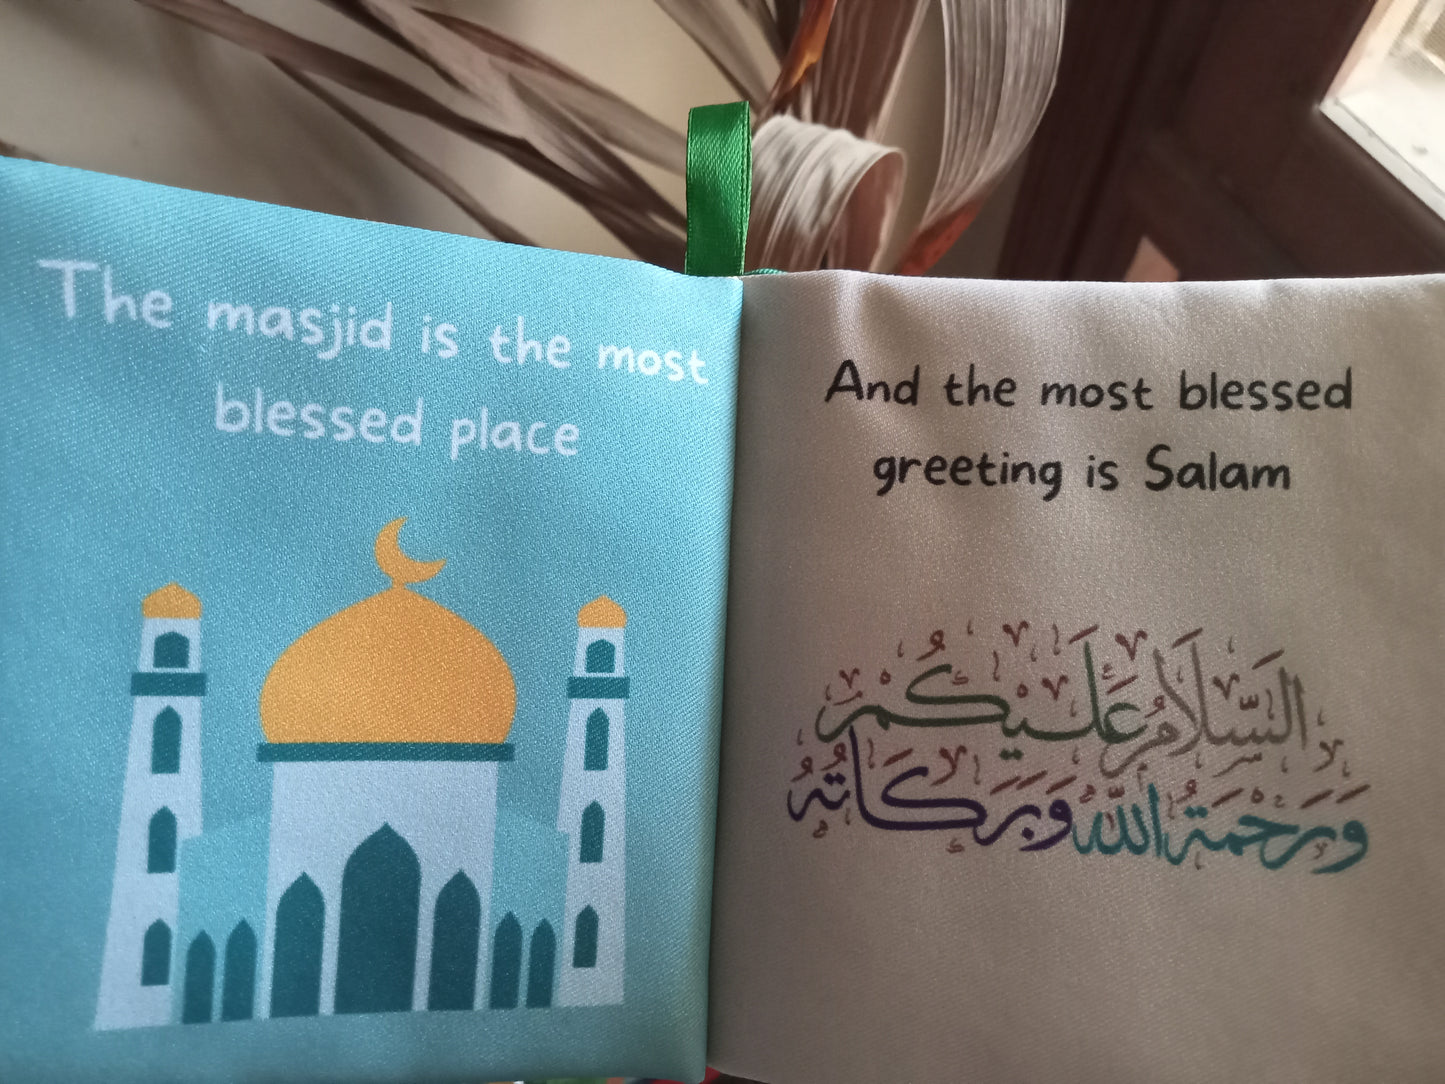 The masjid is the most
blessed place
And the most blessed
greeting is Salam
السَّلَامُ عَلَيْكُمْ
وَرَحْمَةُ اللّٰهِ وَبَرَكَاتُهُ